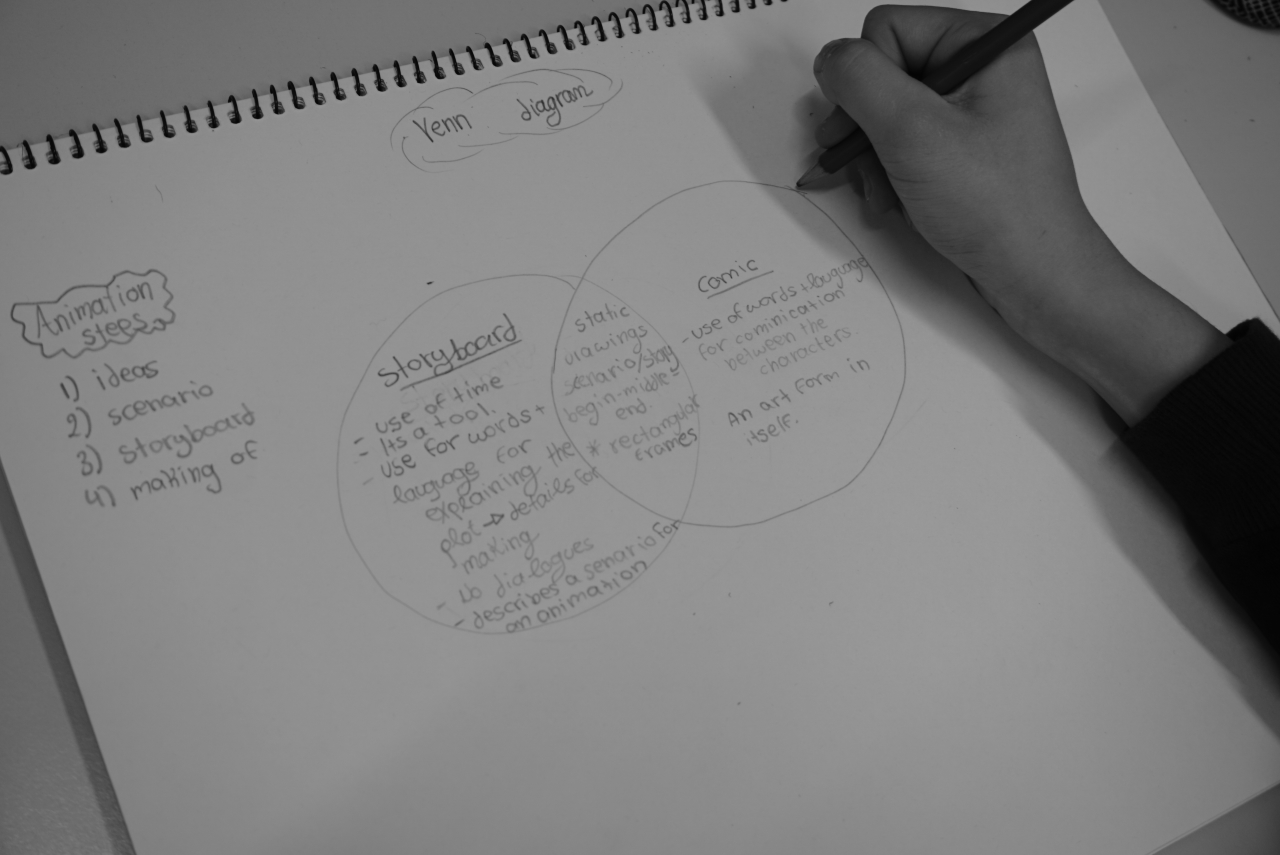 Venn diagram
Animation
steps
1) ideas
2) scenario
3) storyboard
4) making of
Storyboard
- use of time
- Its a tool.
- use for words +
language for
explaining the
plot → details for
making
- No dialogues
- describes a senario for
an animation
static
drawings
scenario/story
begin-middle-
end.
* rectangular
frames
Comic
- use of words + language
for cominication
between the
characters.
An art form in
itself.